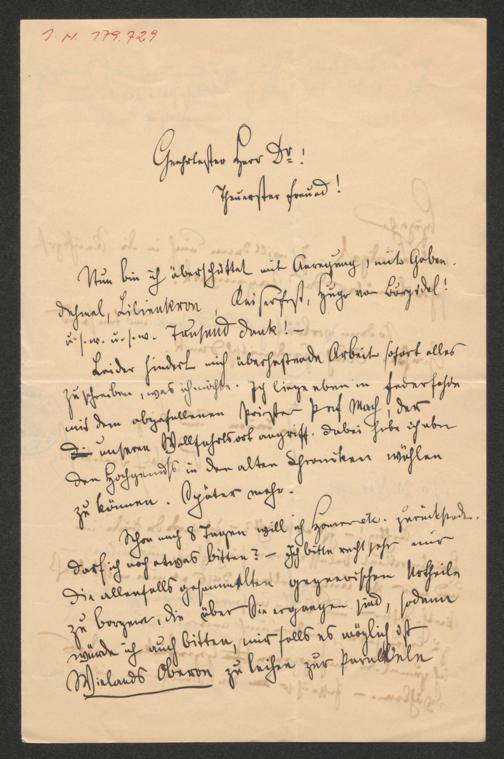 I. N. 179.729
Geehrtester Herr Dr!
Theuerster Freund!
Nun bin ich überschüttet mit Anregung, mit Gaben.
Dehmel, Liliencron Kaiserfest, Hugo von
u. s. w. u. s. w. Tausend Dank! —
Leider hindert mich überhastende Arbeit sofort alles
zu schreiben, was ich möchte. Ich liege eben in Federfehde
mit dem abgefallenen Priester Prof Mach, der
unseren Wallfahrtsort angriff. Dabei habe ich aber
den Hochgenuß in den alten Chroniken wühlen
zu können. Später mehr.
Schon nach 8 Tagen will ich etc. zurücksenden.
Darf ich noch etwas bitten? — Ich bitte recht sehr mir
die allenfalls gesammelten gegnerischen Urtheile
zu borgen, die über Sie ergangen sind, sodann
würde ich auch bitten, mir falls es möglich ist
Wielands Oberon zu leihen zur Parallele